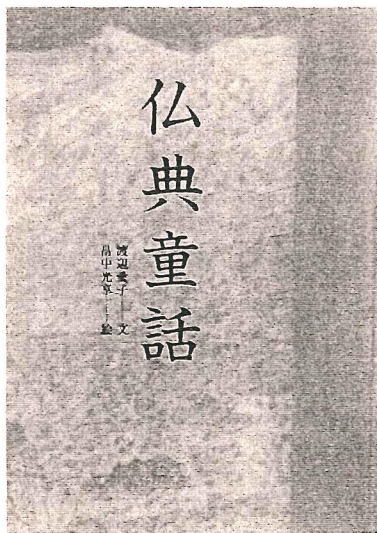 仏典童話
渡辺愛子——文
畠中光享——絵